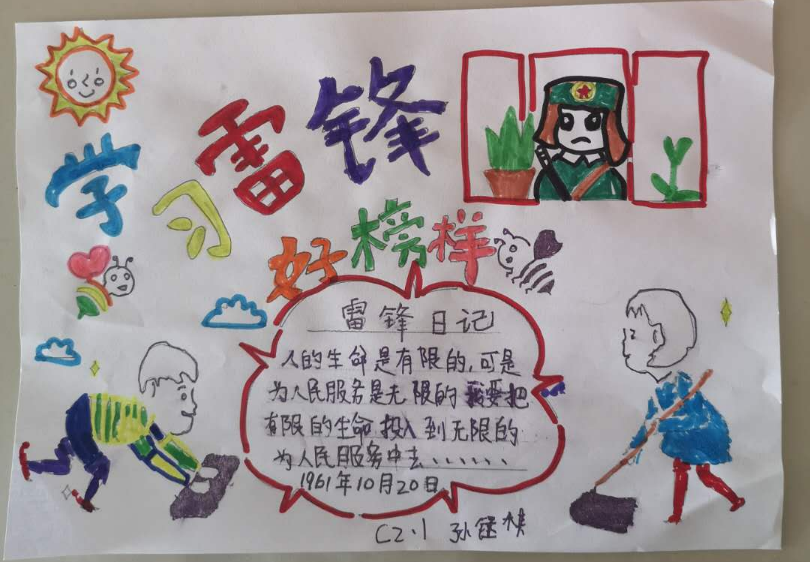 学习雷锋
好榜样
雷锋日记
人的生命是有限的,可是
为人民服务是无限的 我要把
有限的生命投入到无限的
为人民服务中去、、、、、、
1961年10月20日
C2.1 孙